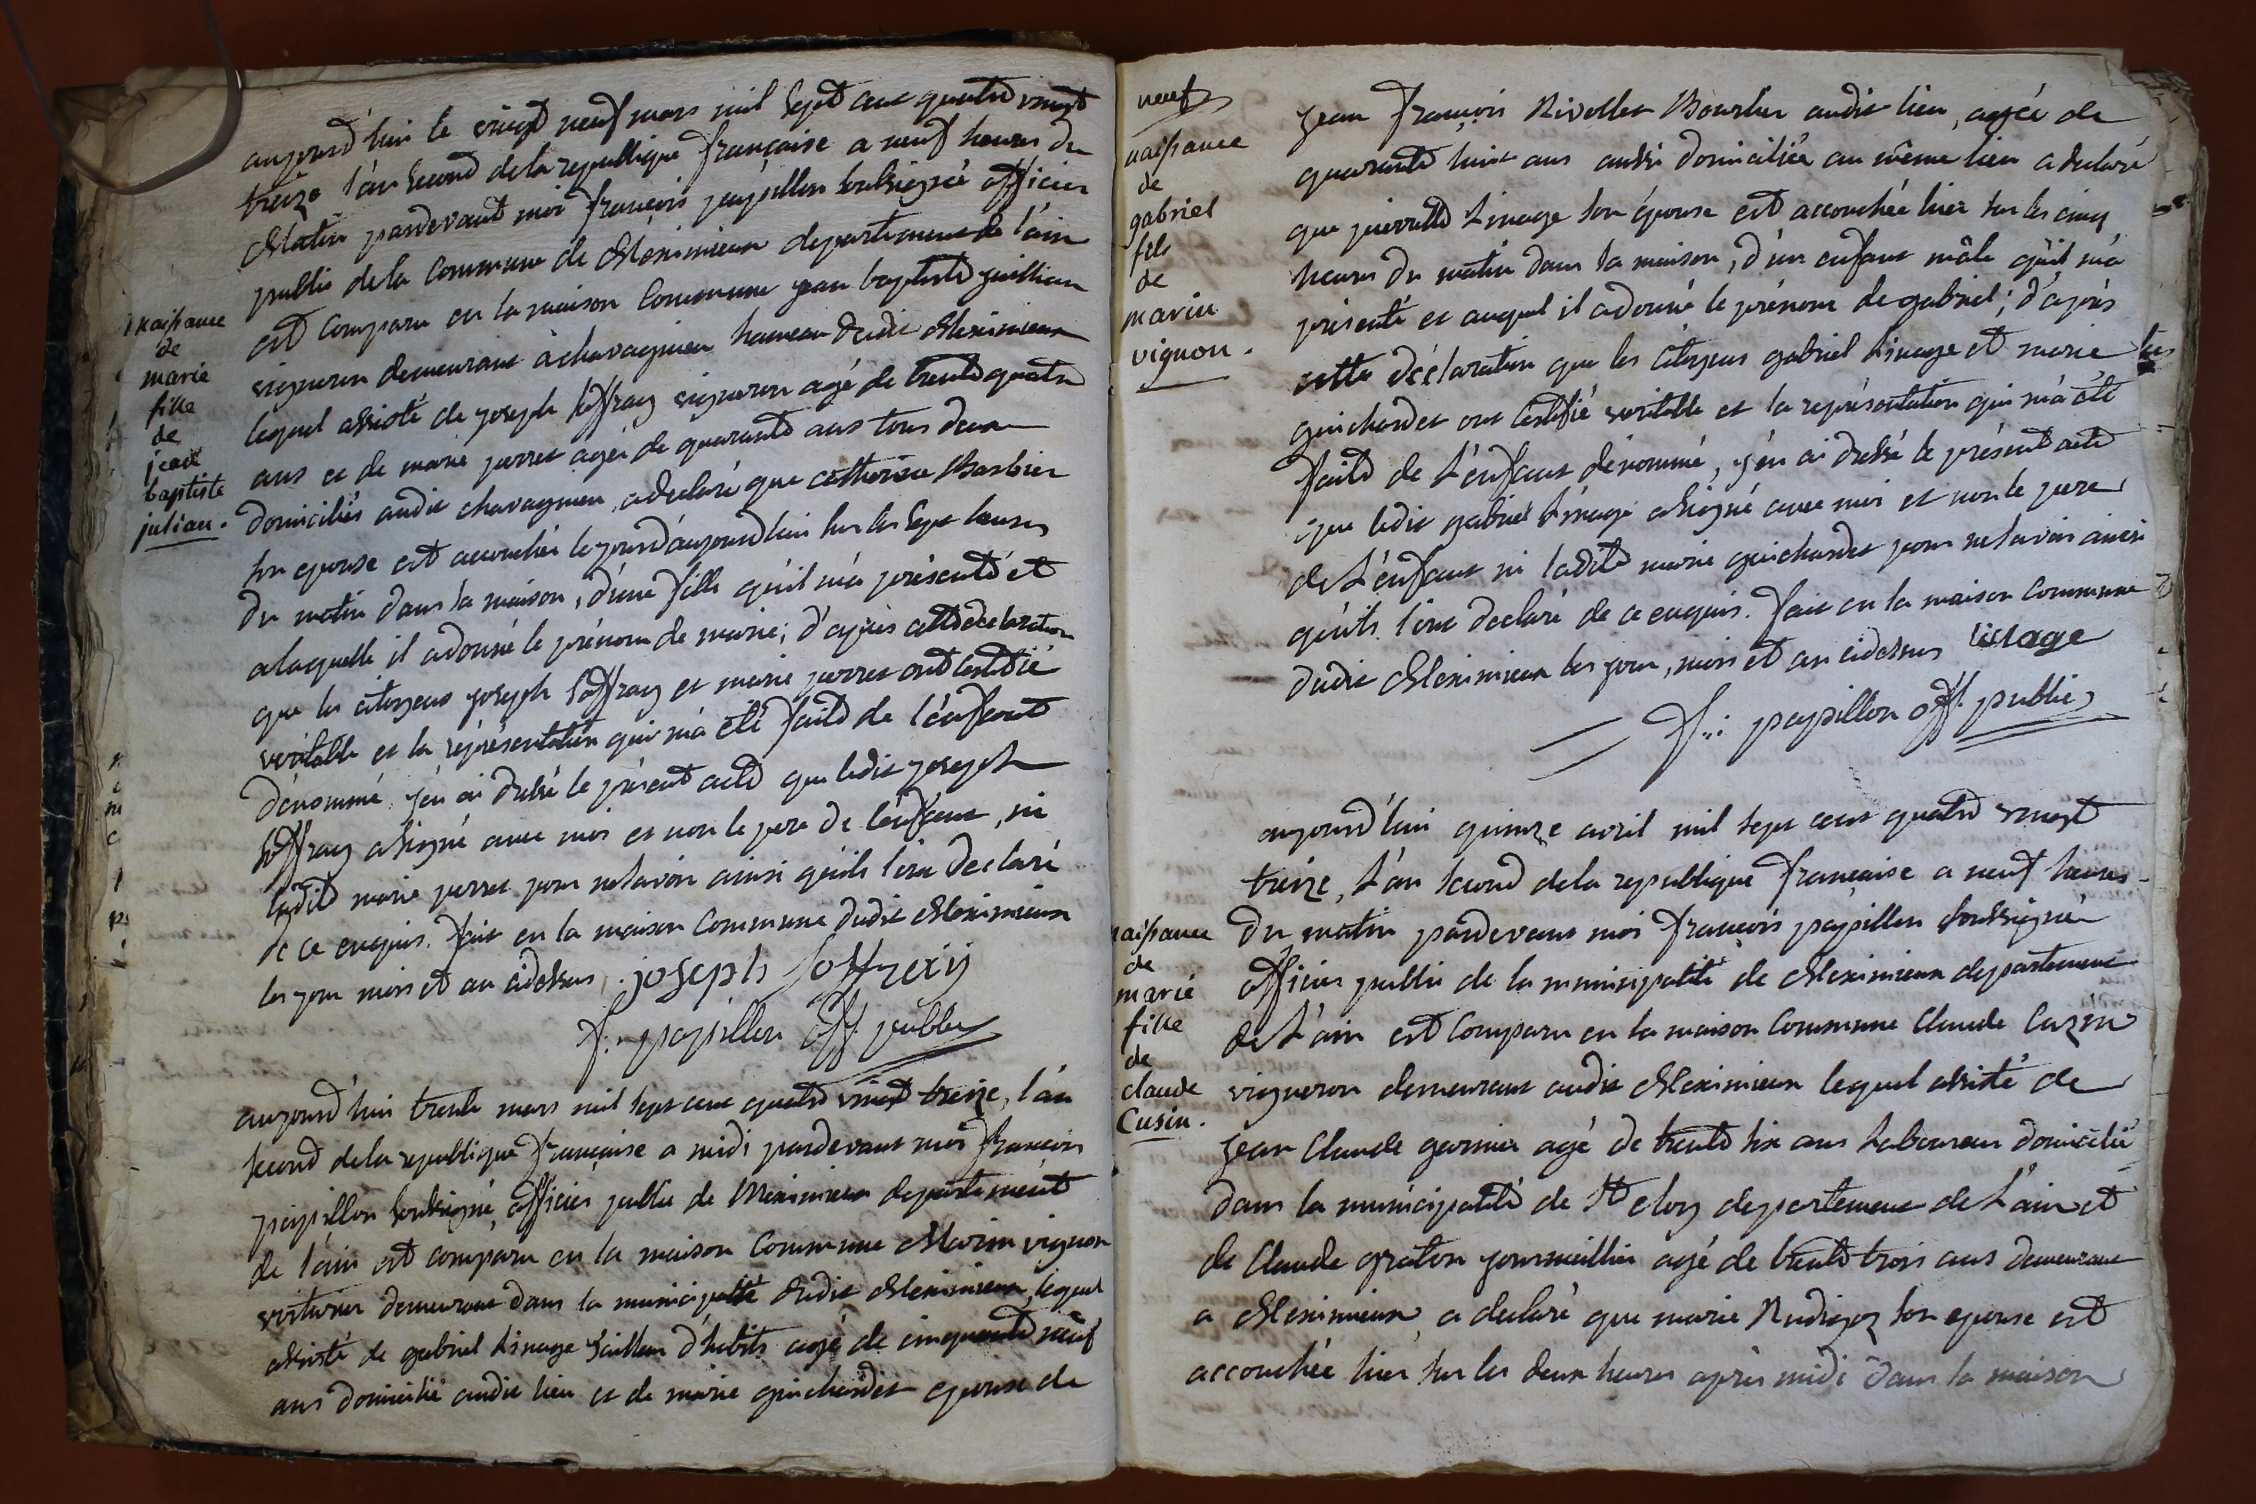 aujourd'hui le vingt neuf mars mil sept cent quatre vingt
treize l'an second de la republique française a neuf heures du
Matin pardevant moi françois papillon soubsigné officier
public de la commune de Meximieux departement de l'ain
est comparu en la maison Commune jean baptiste juillian
vigneron demeurant à chavagnieu hameau dudit Meximieux
lequel assisté de joseph soffray vigneron agé de trente quatre
ans et de marie perret agée de quarante ans tous deux
domiciliés audit chavagnieu, a declaré que catherine Barbier
son epouse est accouchée le jourd'aujourd'hui sur les sept heures
du matin dans sa maison, d'une fille qu'il m'a présenté et
a laquelle il a donné le prénom de marie; d'après cette declaration
que les citoyens joseph soffray et marie perret ont certifié
veritable et la représentation qui m'a été faite de l'enfant
dénommé j'en ai dressé le présent acte que ledit joseph
soffray a signé avec moi et non le pere de l'enfant, ni
ladite marie perret pour ne savoir ainsi qu'ils l'ont declaré
de ce enquis. fait en la maison Commune dudit Meximieux
les jour mois et an cidessus joseph soffreiy
f: papillon off public
naissance
de
marie
fille
de
jean
baptiste
julian.
aujourd'hui trente mars mil sept cent quatre vingt treize, l'an
second de la republique française a midi pardevant moi françois
papillon soubsigné officier public de Meximieux departement
de l'ain est comparu en la maison Commune Marin vignon
voiturier demeurant dans la municipalité dudit Meximieux, lequel
assisté de gabriel Linage tailleur d'habits agé de cinquante neuf
ans domicilié audit lieu et de marie guichardet epouse de
neuf
naissance
de
gabriel
fils
de
marin
vignon.
jean françois Rivollet Bourlier audit lieu, agée de
quarante huit ans aussi domiciliée au même lieu a declaré
que pierrette Linage son épouse est accouchée hier sur les cinq
heures du matin dans sa maison, d'un enfant mâle qu'il m'a
présenté et auquel il a donné le prénom de gabriel; d'après
cette déclaration que les citoyens gabriel Linage et marie
guichardet ont certifié veritable et la représentation qui m'a été
faite de L'enfant dénommé, j'en ai dressé le présent acte
que ledit gabriel Linage a signé avec moi et non le pere
de L'enfant ni ladite marie guichardet pour ne savoir ainsi
qu'ils l'ont declaré de ce enquis. fait en la maison Commune
dudit Meximieux les jour, mois et an cidessus linage
f: papillon off public
aujourd'hui quinze avril mil sept cent quatre vingt
treize, L'an second de la republique française a neuf heures
du matin pardevant moi françois papillon soubsigné
officier public de la municipalité de Meximieux departement
de L'ain est comparu en la maison Commune Claude Cuzin
vigneron demeurant audit Meximieux lequel assisté de
jean Claude garnier agé de trente six ans Laboureur domicilié
dans la municipalité de St eloy departement de L'ain et
de Claude graton journaillier agé de trente trois ans demeurant
a Meximieux a declaré que marie Rudigoz son epouse est
accouchée hier sur les deux heures après midi dans sa maison
naissance
de
marie
fille
de
claude
Cusin.